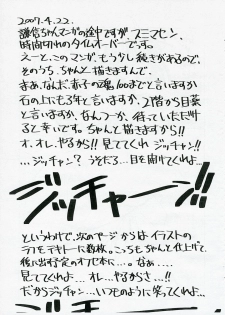 2007.4.22.
謙信ちゃんマンガの途中ですが、スミマセン、
時間切れのタイムオーバーです。
えーと、このマンガ、もう少し続きがあるので、
そのうち、ちゃんと描きますんで、
まぁ、なんだ、赤子の魂、100までと言いますか
石の上にも3年と言いますか、2階から目薬
と言いますか、なんつーか、待っていただけ
ると幸いです。ちゃんと描きますから!!
オ、オレ、やるから!! 見ててくれよジッチャン!!
…ジッチャン? うそだろ… 目を開けてくれよ…
ジッチャーン!!
というわけで、次のページからはイラストの
ラフをテキトーに数枚。こっちもちゃんと仕上げて、
後に出す予定のオフセ本に…。なぁ…、
見ててくれよ…、オレ…やるからさ…!!
だからジッチャン…いつものように笑ってくれよ…
ジッチャ